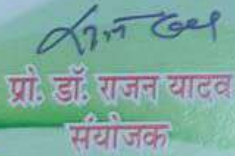 प्रो. डॉ. राजन यादव
संयोजक